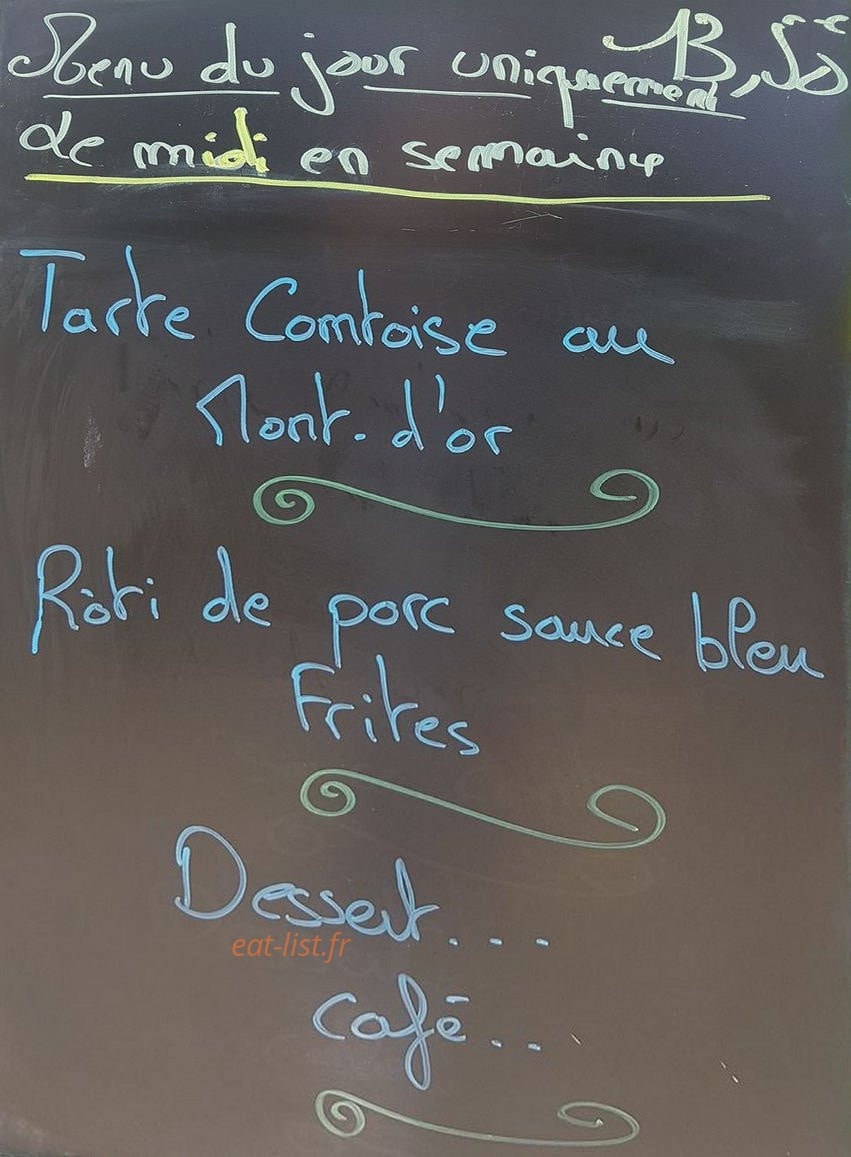 Menu du jour uniquement 13,50 €
Le midi en semaine
Tarte Comtoise au
Mont-d'or
Rôti de porc sauce bleu
Frites
Dessert...
eat-list.fr
café..